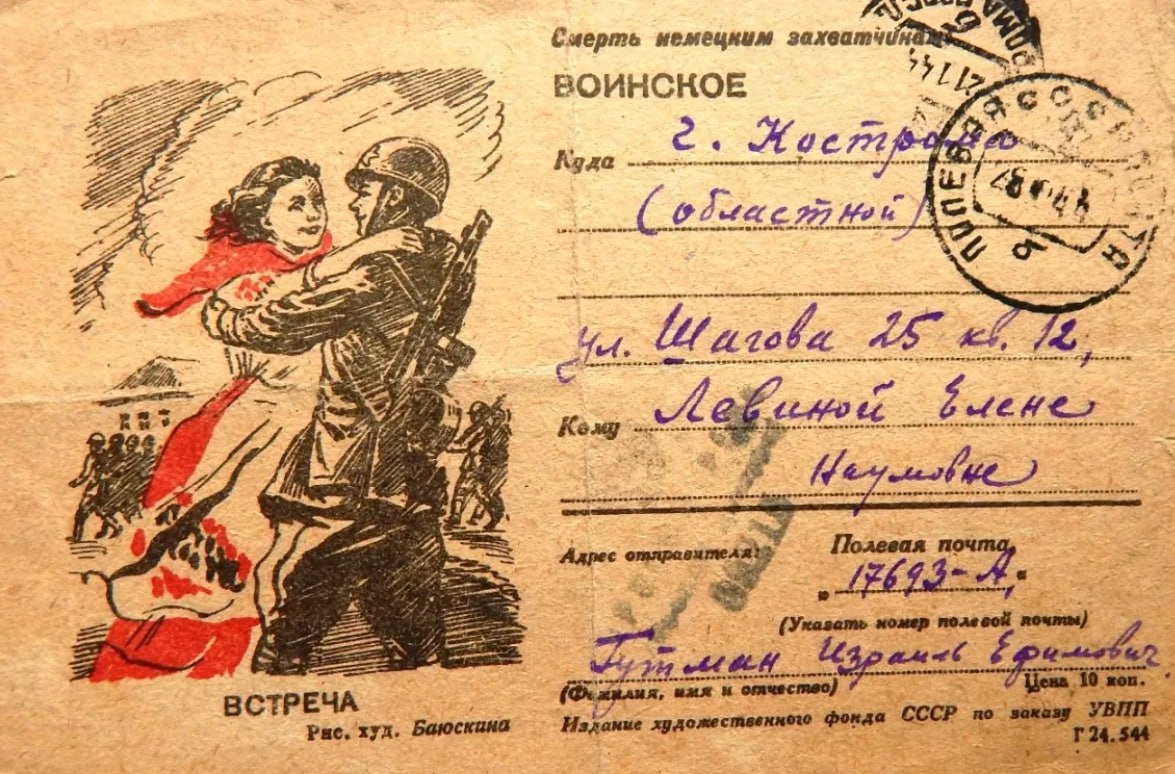 Смерть немецким захватчикам
ВОИНСКОЕ
Куда г. Кострома
(областной)
ул. Шагова 25 кв. 12,
Кому Левиной Елене
Наумовне
Адрес отправителя:
Полевая почта
„17693-А“
(Указать номер полевой почты)
Гутман Израиль Ефимович
(Фамилия, имя и отчество)
Цена 10 коп.
Издание художественного фонда СССР по заказу УВПП
Г 24.544
ВСТРЕЧА
Рис. худ. Баюскина
ПОЛЕВАЯ